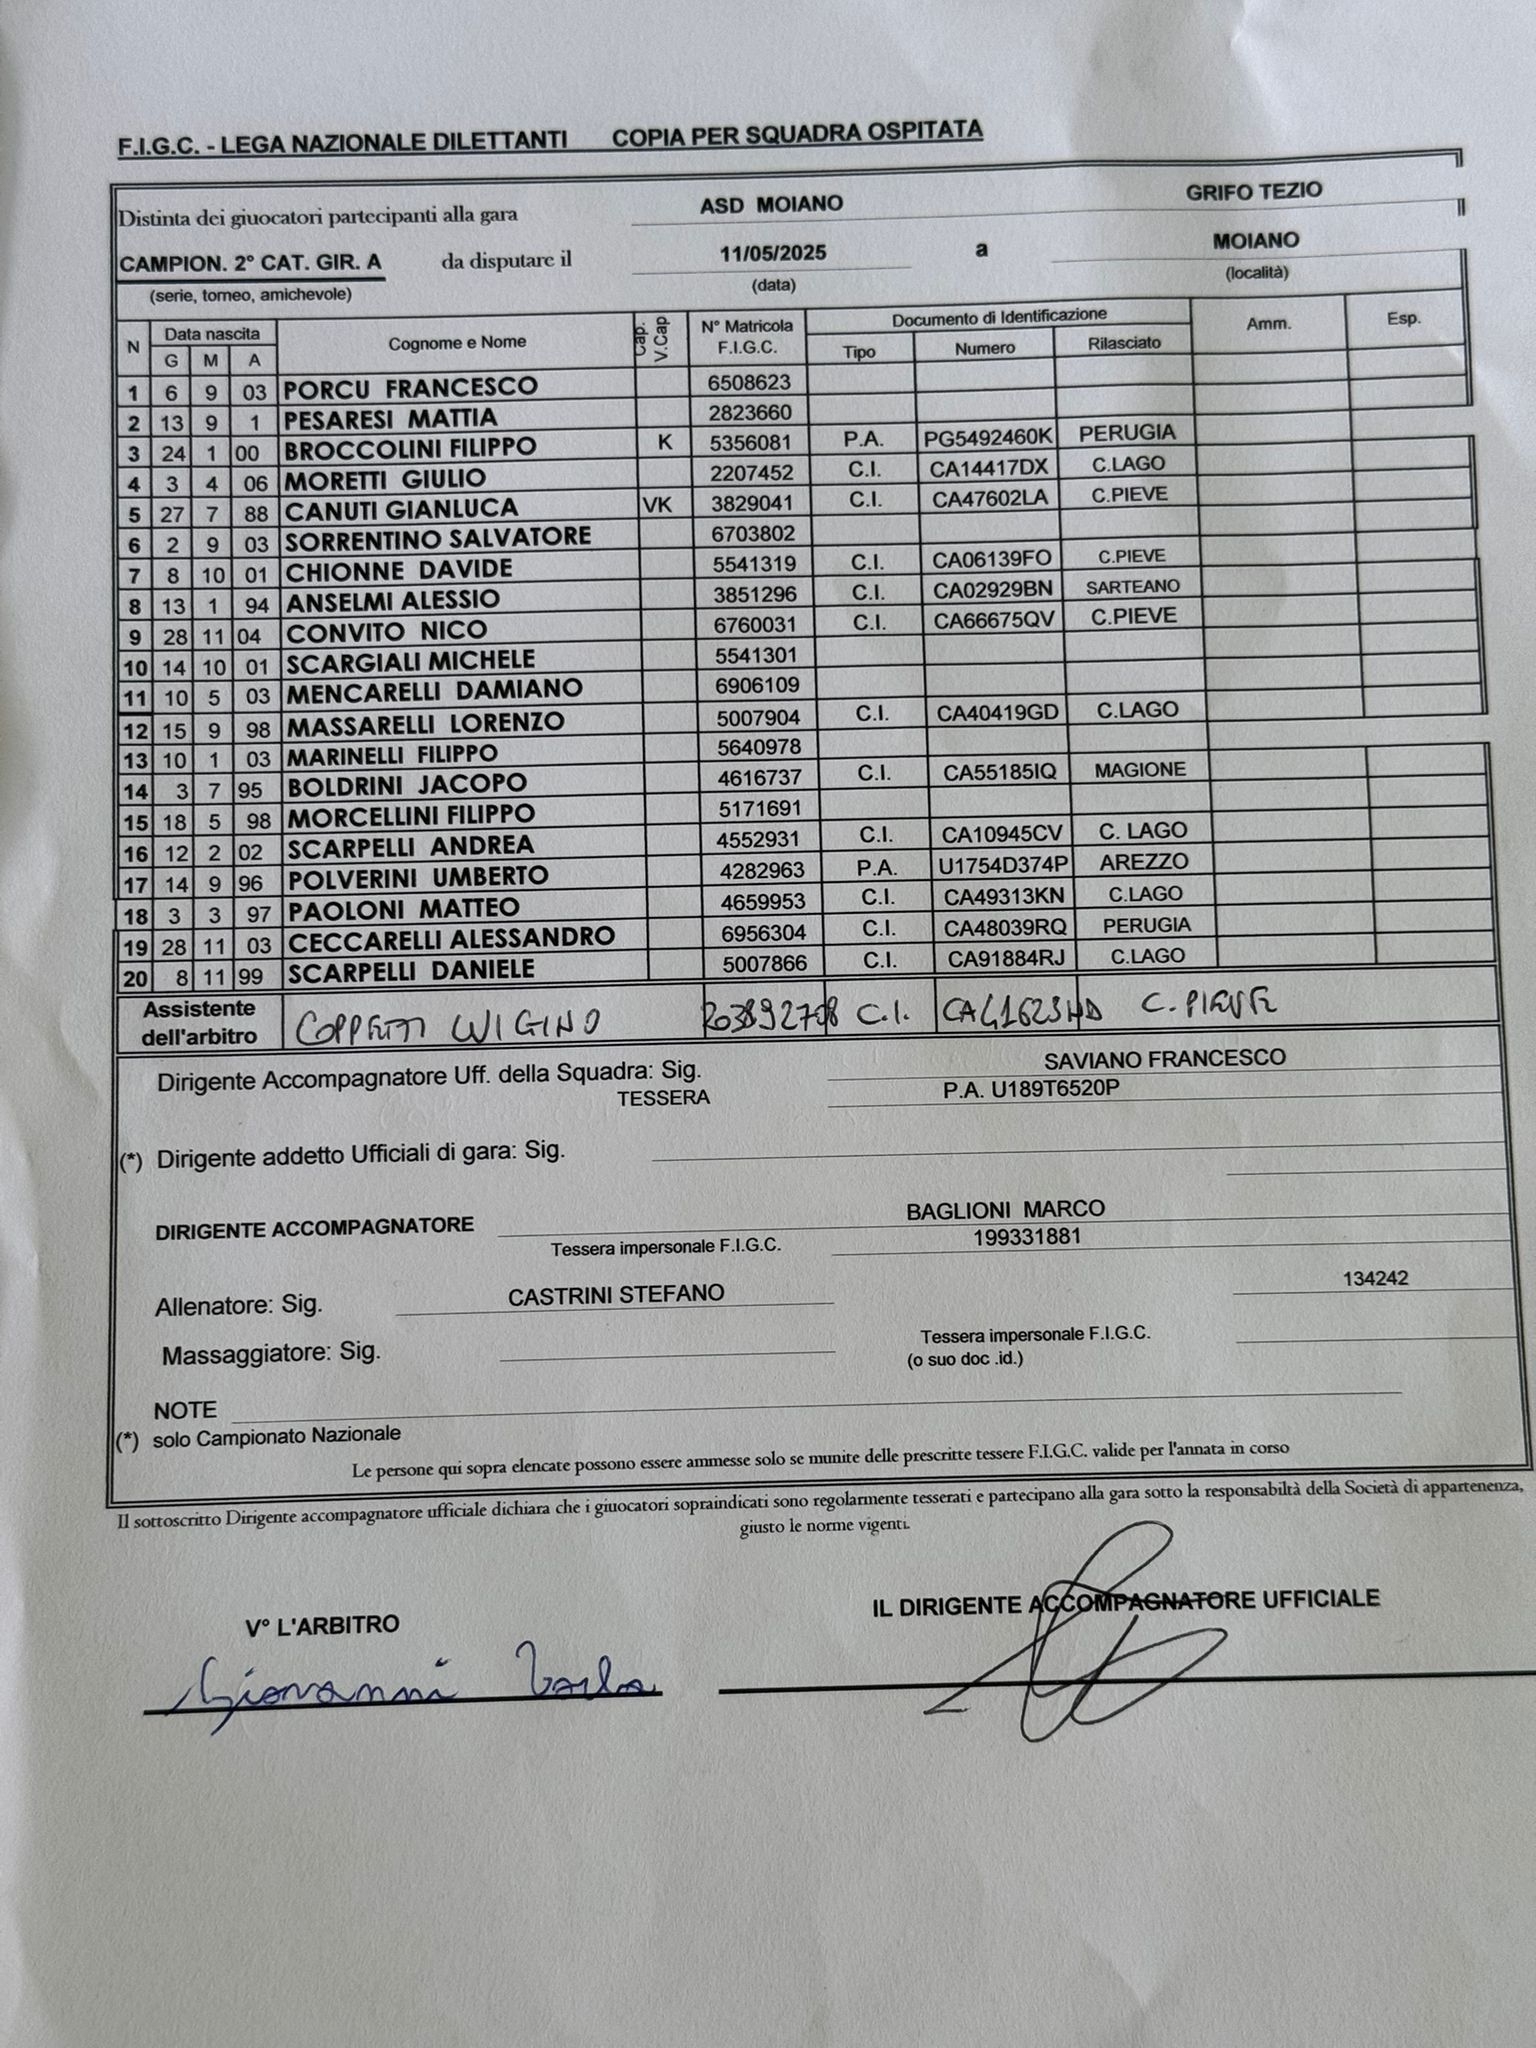 F.I.G.C. - LEGA NAZIONALE DILETTANTI COPIA PER SQUADRA OSPITATA
Distinta dei giuocatori partecipanti alla gara ASD MOIANO GRIFO TEZIO
CAMPION. 2° CAT. GIR. A da disputare il 11/05/2025 a MOIANO
(serie, torneo, amichevole) (data) (località)
N Data nascita Cognome e Nome Cap. V.Cap N° Matricola F.I.G.C. Documento di Identificazione Amm. Esp.
G M A Tipo Numero Rilasciato
1 6 9 03 PORCU FRANCESCO 6508623
2 13 9 1 PESARESI MATTIA 2823660
3 24 1 00 BROCCOLINI FILIPPO K 5356081 P.A. PG5492460K PERUGIA
4 3 4 06 MORETTI GIULIO 2207452 C.I. CA14417DX C.LAGO
5 27 7 88 CANUTI GIANLUCA VK 3829041 C.I. CA47602LA C.PIEVE
6 2 9 03 SORRENTINO SALVATORE 6703802
7 8 10 01 CHIONNE DAVIDE 5541319 C.I. CA06139FO C.PIEVE
8 13 1 94 ANSELMI ALESSIO 3851296 C.I. CA02929BN SARTEANO
9 28 11 04 CONVITO NICO 6760031 C.I. CA66675QV C.PIEVE
10 14 10 01 SCARGIALI MICHELE 5541301
11 10 5 03 MENCARELLI DAMIANO 6906109
12 15 9 98 MASSARELLI LORENZO 5007904 C.I. CA40419GD C.LAGO
13 10 1 03 MARINELLI FILIPPO 5640978
14 3 7 95 BOLDRINI JACOPO 4616737 C.I. CA55185IQ MAGIONE
15 18 5 98 MORCELLINI FILIPPO 5171691
16 12 2 02 SCARPELLI ANDREA 4552931 C.I. CA10945CV C. LAGO
17 14 9 96 POLVERINI UMBERTO 4282963 P.A. U1754D374P AREZZO
18 3 3 97 PAOLONI MATTEO 4659953 C.I. CA49313KN C.LAGO
19 28 11 03 CECCARELLI ALESSANDRO 6956304 C.I. CA48039RQ PERUGIA
20 8 11 99 SCARPELLI DANIELE 5007866 C.I. CA91884RJ C.LAGO
Assistente dell'arbitro COPPETTI LUIGINO C.I. C. PIEVE
Dirigente Accompagnatore Uff. della Squadra: Sig. SAVIANO FRANCESCO
TESSERA P.A. U189T6520P
(*) Dirigente addetto Ufficiali di gara: Sig.
DIRIGENTE ACCOMPAGNATORE BAGLIONI MARCO
Tessera impersonale F.I.G.C. 199331881
Allenatore: Sig. CASTRINI STEFANO 134242
Massaggiatore: Sig. Tessera impersonale F.I.G.C.
(o suo doc .id.)
NOTE
(*) solo Campionato Nazionale
Le persone qui sopra elencate possono essere ammesse solo se munite delle prescritte tessere F.I.G.C. valide per l'annata in corso
Il sottoscritto Dirigente accompagnatore ufficiale dichiara che i giuocatori sopraindicati sono regolarmente tesserati e partecipano alla gara sotto la responsabiltà della Società di appartenenza,
giusto le norme vigenti.
V° L'ARBITRO IL DIRIGENTE ACCOMPAGNATORE UFFICIALE
Giovanni